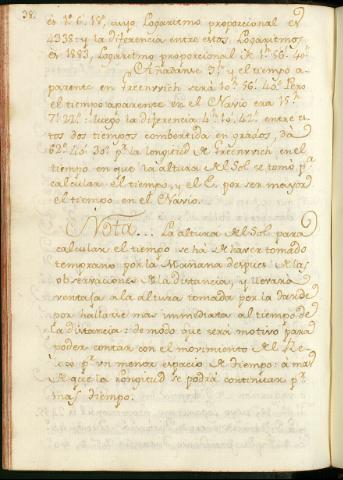 38.
es 1º 6' 18", cuyo Logaritmo proporcional es
4338: y la diferencia entre estos Logaritmos
es 1883, Logaritmo proporcional de 1º 56' 40"
Añadanse 9h y el tiempo a-
parente en Greenwich será 10h 56' 40" Pero
el tiempo aparente en el Navio era 15h
7' 22": luego la diferencia 4h 10' 42" entre es
tos dos tiempos combertida en grados, da
62º 40' 30" pª la longitud de Greenwich en el
tiempo en que la altura del Sol se tomó pª
calcular el tiempo, y el E. por ser mayor
el tiempo en el Navio.
Nota... La altura del Sol para
calcular el tiempo se há de haver tomado
temprano por la Mañana despues de las
observaciones de la distancia, y llevaria
ventaja a la altura tomada por la tarde
por hallarse mas immediata al tiempo de
la distancia: de modo que será motivo para
poder contar con el movimiento del Re-
lox pr un menor espacio de tiempo: a mas
de que la longitud se podrá continuar pr
mas tiempo.